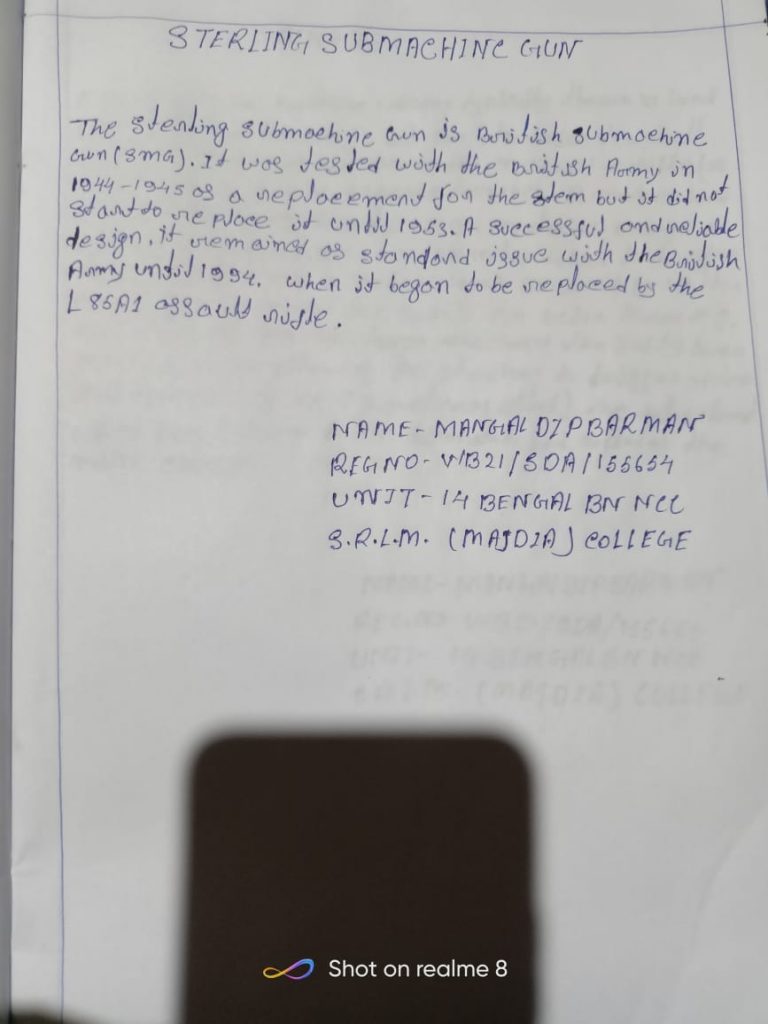 STERLING SUBMACHINE GUN
The Sterling Submachine Gun is British submachine
Gun (SMG). It was tested with the British Army in
1944-1945 as a replacement for the stem but it did not
start to replace it until 1953. A successful and reliable
design, it remained as standard issue with the British
Army until 1994. when it began to be replaced by the
L 85A1 assault rifle.
NAME- MANGAL DIP BARMAN
REGNO- WB21/SDA/155654
UNIT- 14 BENGAL BN NCC
S.R.L.M. (MAJDIA) COLLEGE
Shot on realme 8